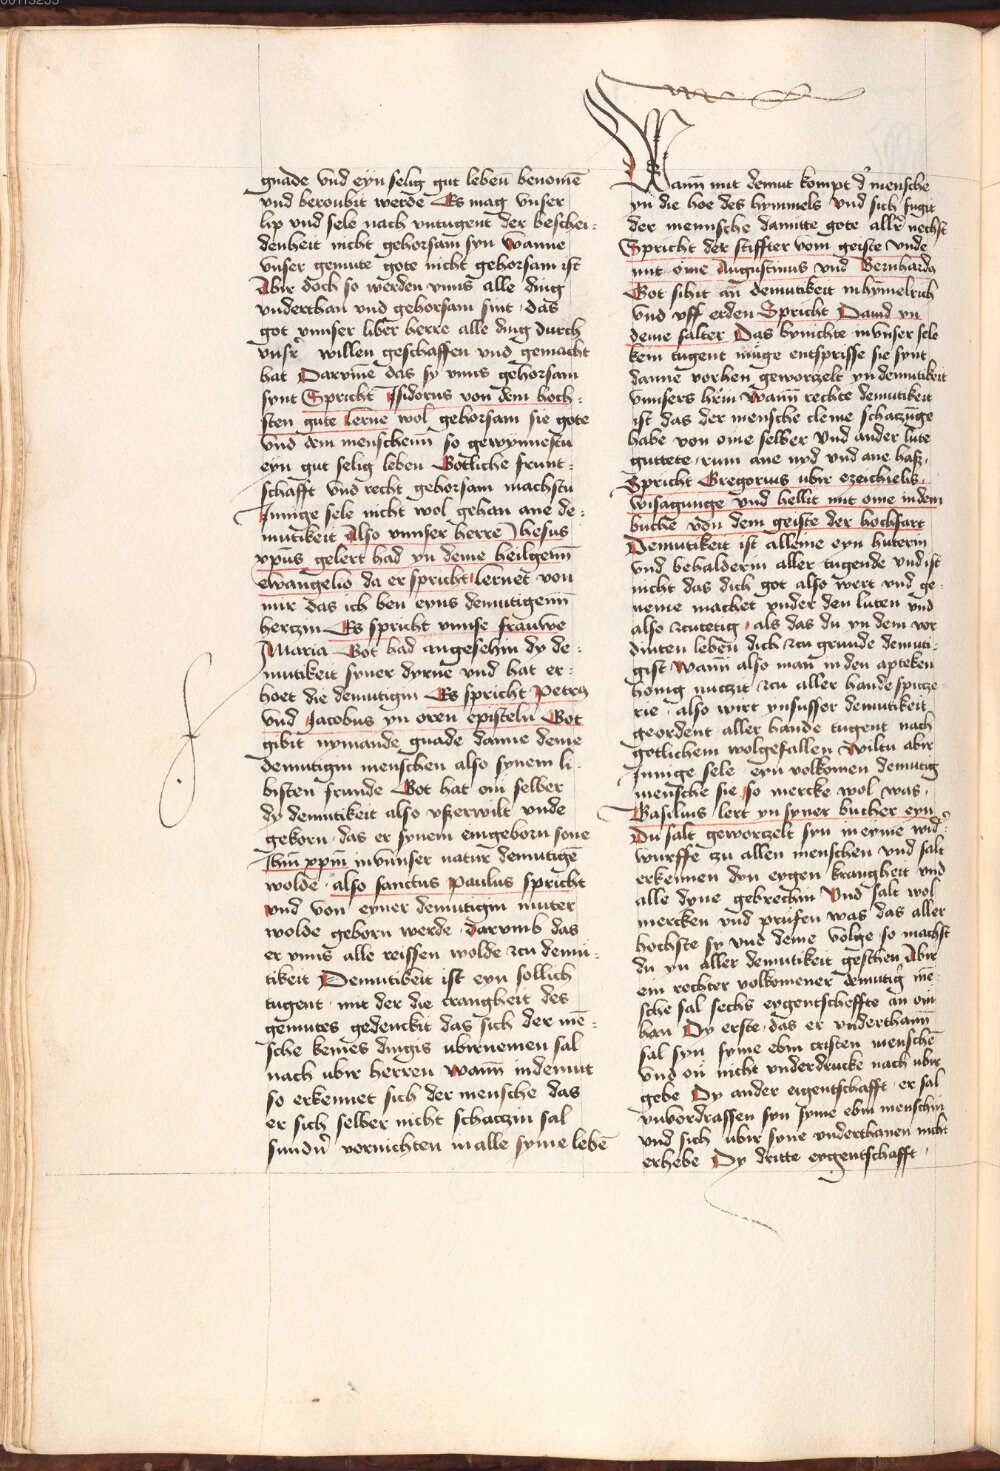 gnade vnd eyn selig gut lebenn benomē
vnd beroubit werde Es mag vnser
lip vnd sele nach vntugent der beschei⸗
denheit nicht gehorsam syn wanne
vnser gemute gote nicht gehorsam ist
Abir doch so werden vnns alle ding
vnderthan vnd gehorsam sint das
got vnnser liber herre alle ding durch
vnsr̄ willen geschaffen vnd gemacht
hat Darvme das sy vnns gehorsam
synt Spricht Isidorus von dem hoch⸗
sten gute Lerne wol gehorsam sie gote
vnd dem menschenn so gewynnestu
eyn gut selig leben Gotliche frunt⸗
schafft vnd recht gehorsam machstu
Innige sele nicht wol gehan ane de⸗
mutikeit Also vnnser herre Jhesus
xpūs gelert had yn deme heilgenn
ewangelio da er spricht lernet von
mir das ich ben eyns demutigenn
herczin Es spricht vnnse frauwe
Maria Got had angesehin dy de⸗
mutikeit syner dyrne vnd hat er⸗
hoet die demutigin Es spricht Petrus
vnd Jacobus yn oren episteln Got
gibit nymande gnade danne deme
demutigin menschen also synem li⸗
bisten frunde Got hat om selber
dy demutikeit also vßerwilt vnde
gekorn das er synem eingeborn sone
Jhm̄ xpm̄ in vnnser natur demutigē
wolde also sanctus Paulus spricht
vnd von eyner demutigin muter
wolde geborn werde darvmb das
er vnns alle reissen wolde zcu demu⸗
tikeit Demutikeit ist eyn sollich
tugent mit der die crangheit des
gemutes gedenckit das sich der mē⸗
sche keines dingis vbirnemen sal
nach vbir herren wann in demut
so erkennet sich der mensche das
er sich selber nicht schaczin sal
sundir vornichten in alle syme lebē
Wann mit demut kompt d' mensche
yn die hoe des hymmels vnd sich fugit
der mennsche damitte gote allir nechst
Spricht der stiffter vom geiste vnde
mit ome Augustinus vnd Bernhardus
Got sihit an demutikeit in hymelrich
vnd vff erden Spricht Dauid yn
deme salter Das bynichte in vnser sele
kein tugent muge entsprisse sie synt
danne vorhen geworczelt yn demutikeit
vnnsers hrīn Wann rechte demutikeit
ist das der mensche cleine schaczuge
habe von ome selber vnd ander lute
guttete rum ane nyd vnd ane haß
Spricht Gregorius vbir ezechielis
wisagunge vnd hellit mit ome in dem
buche von dem geiste der hochfart
Demutikeit ist alleine eyn huterin
vnd behalderin aller tugende vnd ist
nicht das dich got also wert vnd ge
neme machet vnder den luten vnd
also zcutetig als das du yn dem vor
dinten leben dich zcu grunde demuti⸗
gist Wann also man in den apteken
honig nuczit zcu aller hande spicze⸗
rie also wirt yn susser demutikeit
geordent aller hande tugent nach
gotlichem wolgefallen Wiltu abir
Innige sele eyn volkomen demutig
mensche sie so mercke wol was
Basilius lert yn syner bucher eyn
Du salt geworczelt syn in eyme wid'
wurffe zu allen menschen vnd salt
erkennen dyn eygen krangheit vnd
alle dyne gebrechin Vnd salt wol
mercken vnd prufen was das aller
hochste sy vnd deme volge so machst
du yn aller demutikeit geschen Abir
ein rechter volkomener demutig' mē
sche sal sechs eygentscheffte an om
han Dy erste das er vnderthann
sal syn syme ebin cristen menschē
vnd on nicht vnderdrucke nach vbir
gebe Dy ander eigentschafft er sal
vnvordrassen syn syme ebin menschin
vnd sich vbir syne vnderthanen nicht
erhebe Dy dritte eygentschafft